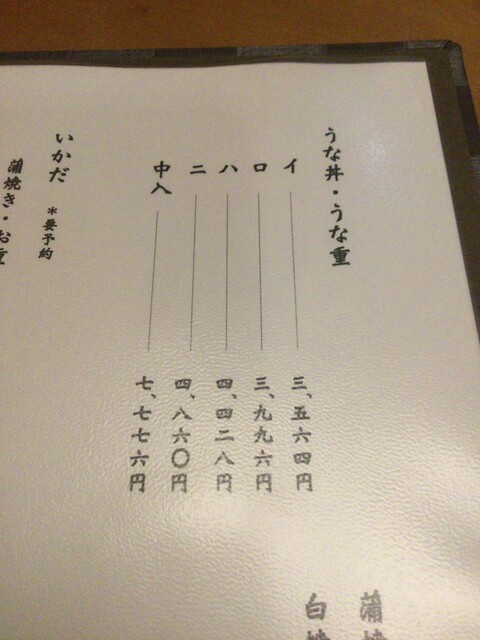 うな丼・うな重
イ 三、五六四円
ロ 三、九九六円
ハ 四、四二八円
ニ 四、八六〇円
中入 七、七七六円
いかだ ＊要予約
蒲焼き・お重
蒲焼
白焼